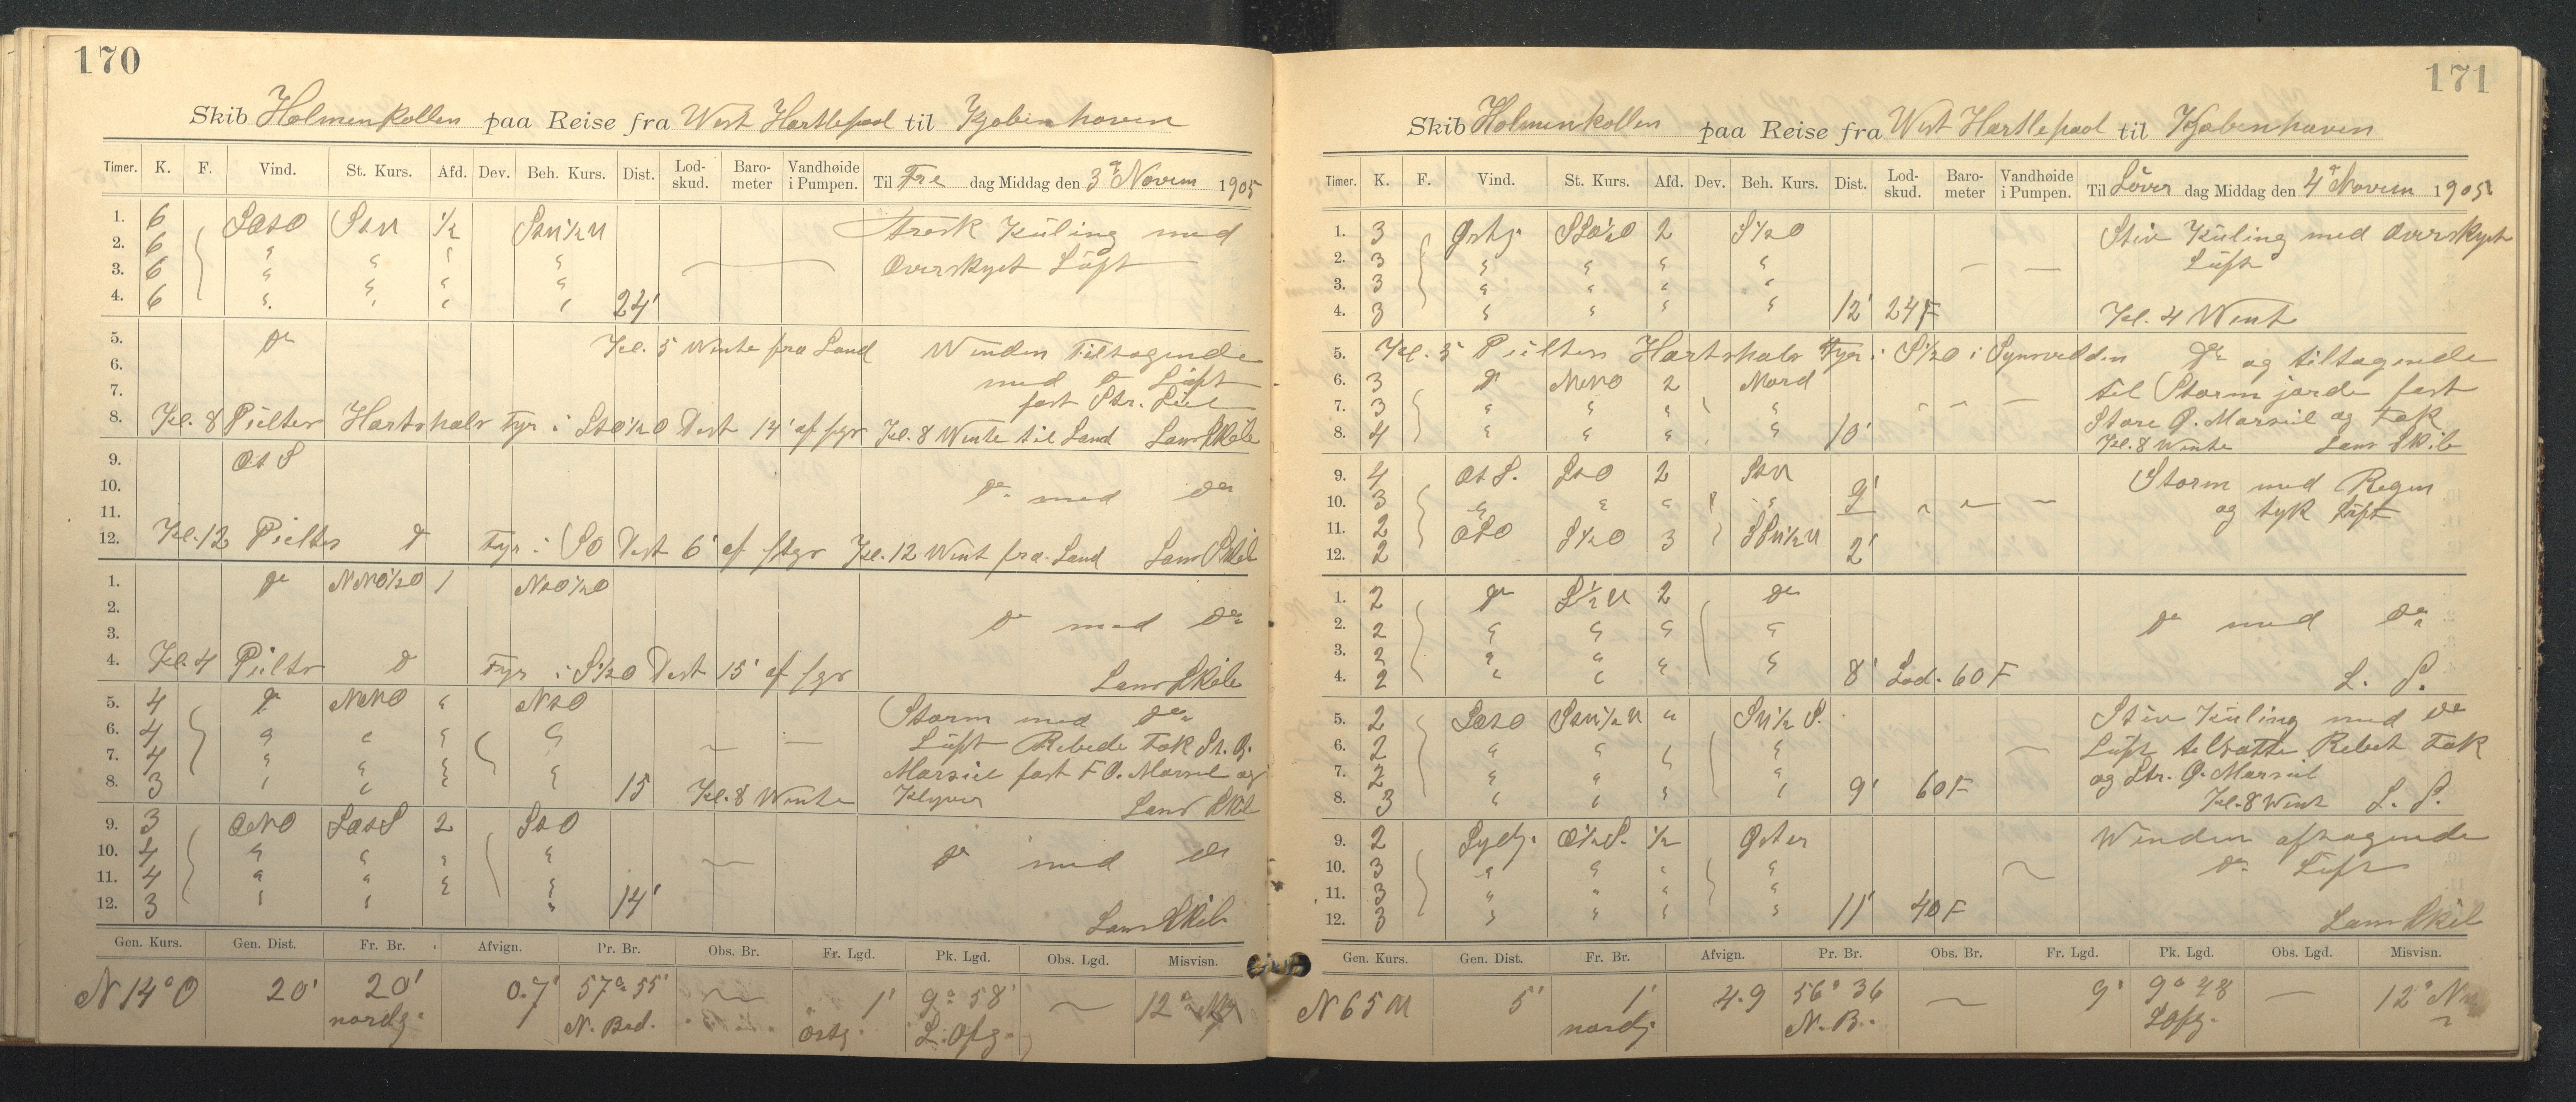 170
Skib Holmenkollen paa Reise fra West Hartlepool til Kjøbenhaven
Timer. K. F. Vind. St. Kurs. Afd. Dev. Beh. Kurs. Dist. Lod-skud. Baro-meter Vandhøide i Pumpen. Til Fre dag Middag den 3de Novem 1905
1. 6 SOSO SSU 1/2 SSU1/2U Stærk Kuling med
2. 6 " " " "
3. 6 " " " " Overskyet Luft
4. 6 " " " " 24'
5. do Kl. 5 Wente fra Land Winden Tiltagende
6. med do Luft
7. fast Str. Seil
8. Kl. 8 Peilter Hartshals Fyr i SSO1/2O Dist 14' af fyr Kl. 8 Wente til Land Lans Skib
9. Ot S
10. do med do
11.
12. Kl. 12 Peilter do Fyr i SO Dist 6' af Kl. 12 Went fra Land Lans Skib
1. do NNO1/2O 1 NtO1/2O
2. do med do
3.
4. Kl. 4 Peilter do Fyr i S1/2O Dist 15' af fyr Lans Skib
5. 4 do NNO " NtO Storm med do
6. 4 " " " " Luft Rebede Fok St. B.
7. 4 " " " " Marseil fast F O. Marseil og
8. 3 " " " " 15 Kl. 8 Wente Klyver Lans Skib
9. 3 ONO SOtS 2 StO
10. 4 " " " " do med do
11. 4 " " " "
12. 3 " " " 14' Lans Skib
Gen. Kurs. Gen. Dist. Fr. Br. Afvign. Pr. Br. Obs. Br. Fr. Lgd. Pk. Lgd. Obs. Lgd. Misvisn.
N 14° O 20' 20' 0.7' 57° 55' 1' 9° 58' 12°
nordg. N. Bred. østg. L. Ofg.
171
Skib Holmenkollen paa Reise fra West Hartlepool til Kjøbenhaven
Timer. K. F. Vind. St. Kurs. Afd. Dev. Beh. Kurs. Dist. Lod-skud. Baro-meter Vandhøide i Pumpen. Til Løver dag Middag den 4de Novem 1905
1. 3 Østg. SSO1/2O 2 S1/2O Stiv Kuling med Overskyet
2. 3 " " " " Luft
3. 3 " " " "
4. 3 " " " " 12' 24F Kl. 4 Went
5. Kl. 5 Peilter Hartshals Fyr i S1/2O i Synsvidden do og tiltagende
6. 3 do NNO 2 Nord til Storm fast
7. 3 " " " " Store Ø. Marseil og Fok
8. 4 " " " " 10' Kl. 8 Wente Lans Skib
9. 4 Ot S. StO 2 StU Storm med Regen
10. 3 " " " " 9' og tyk Luft
11. 2 OSO S1/2O 3 SSU1/2U
12. 2 2'
1. 2 do S1/2U 2 do
2. 2 " " " " do med do
3. 2 " " " "
4. 2 " " " " 8' Lod. 60F L. S.
5. 2 SOSO SSU1/2U " SU1/2S. Stiv Kuling med do
6. 2 " " " " Luft tilsatte Rebet Fok
7. 2 " " " " og Str. Ø. Marseil
8. 3 " " " " 9' 60F Kl. 8 Went L. S.
9. 2 Sydg. O1/2S. 1/2 Øster Winden aftagende
10. 3 " " " " do Luft
11. 3 " " " "
12. 3 " " " " 11' 40F Lans Skib
Gen. Kurs. Gen. Dist. Fr. Br. Afvign. Pr. Br. Obs. Br. Fr. Lgd. Pk. Lgd. Obs. Lgd. Misvisn.
N 65 U 5' 1' 4.9 56° 36 9' 9° 48 12°
nordg. N. B. L Ofg.